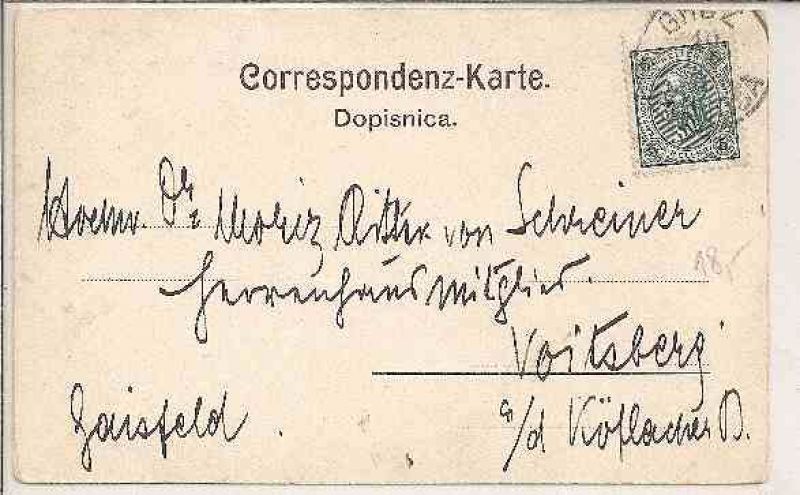 Correspondenz-Karte.
Dopisnica.
Hochw. Dr. Moriz Ritter von Schreiner
Herrenhausmitglied.
18,-
Voitsberg
Gaisfeld.
a/d Köflacher B.
GRAZ